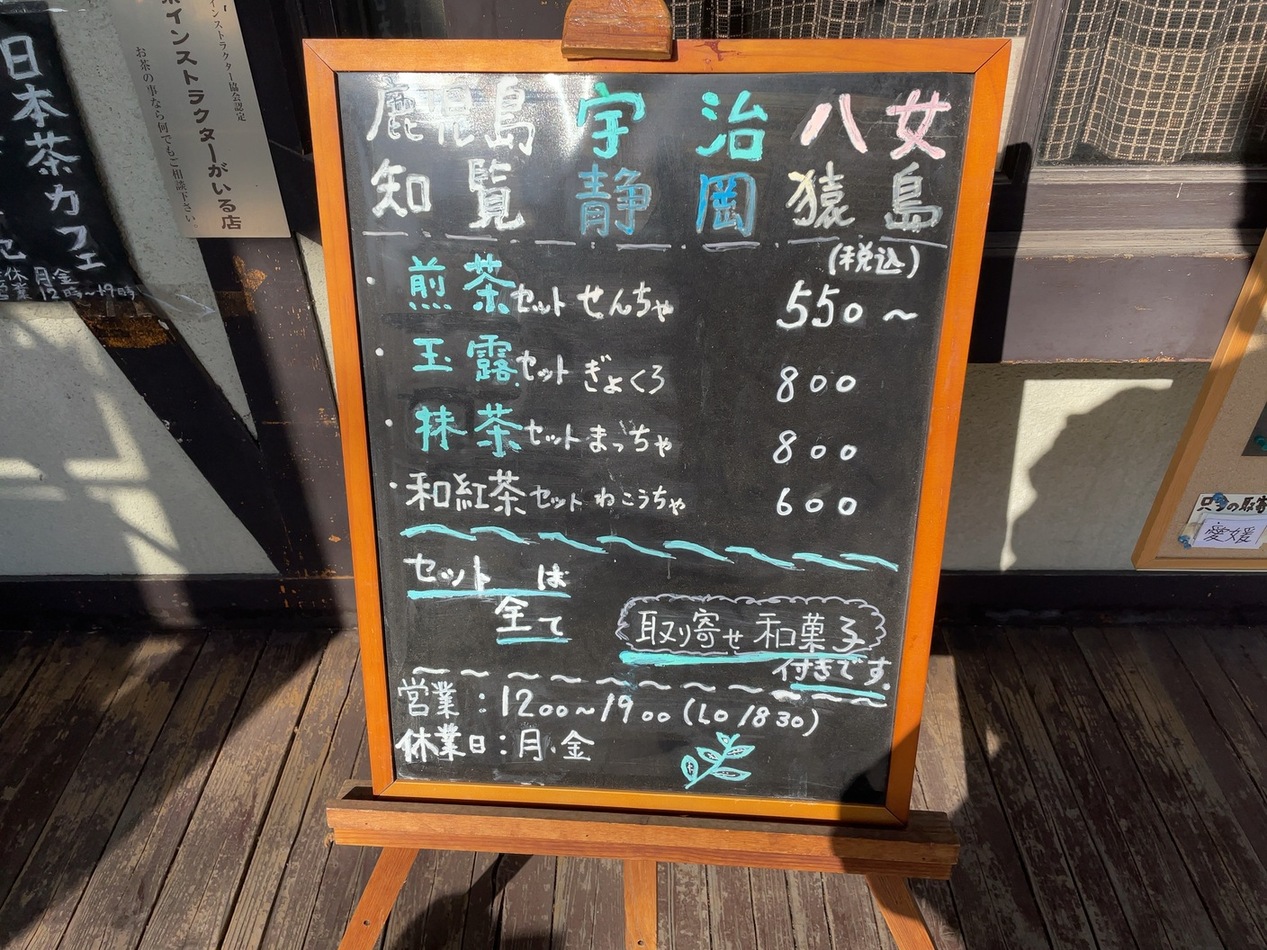 日本茶カフェ
定休 月金
営業 12時〜19時
インストラクター協会認定
茶インストラクターがいる店
お茶の事なら何でもご相談下さい。
鹿児島 宇治 八女
知覧 静岡 猿島
(税込)
・煎茶セット せんちゃ 550〜
・玉露セット ぎょくろ 800
・抹茶セット まっちゃ 800
・和紅茶セット わこうちゃ 600
セットは
全て
取り寄せ和菓子
付きです。
営業:1200〜1900(LO 1830)
休業日:月・金
愛媛